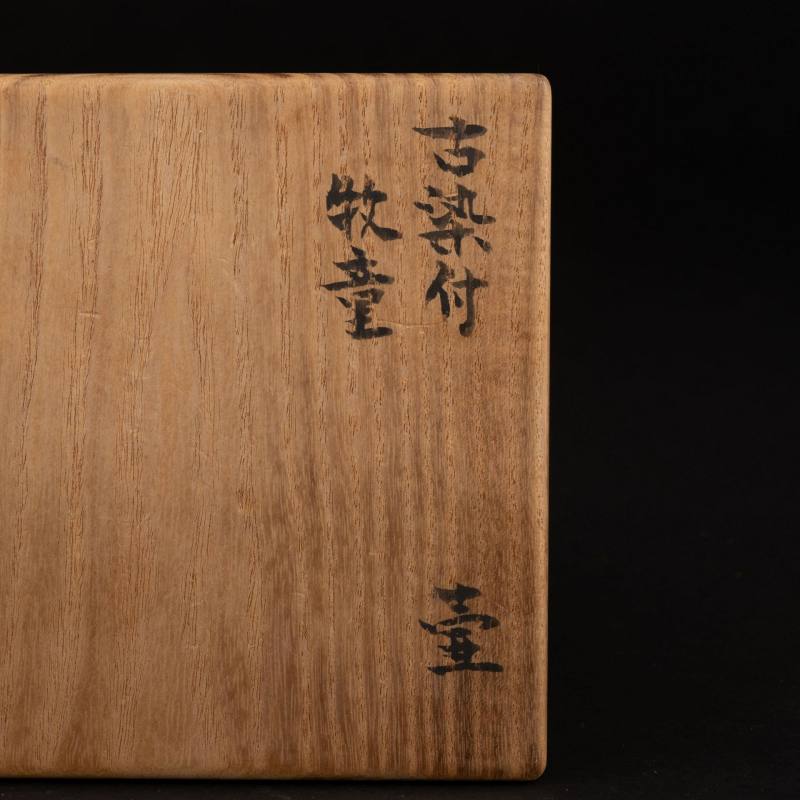 古染付
牧童
壷